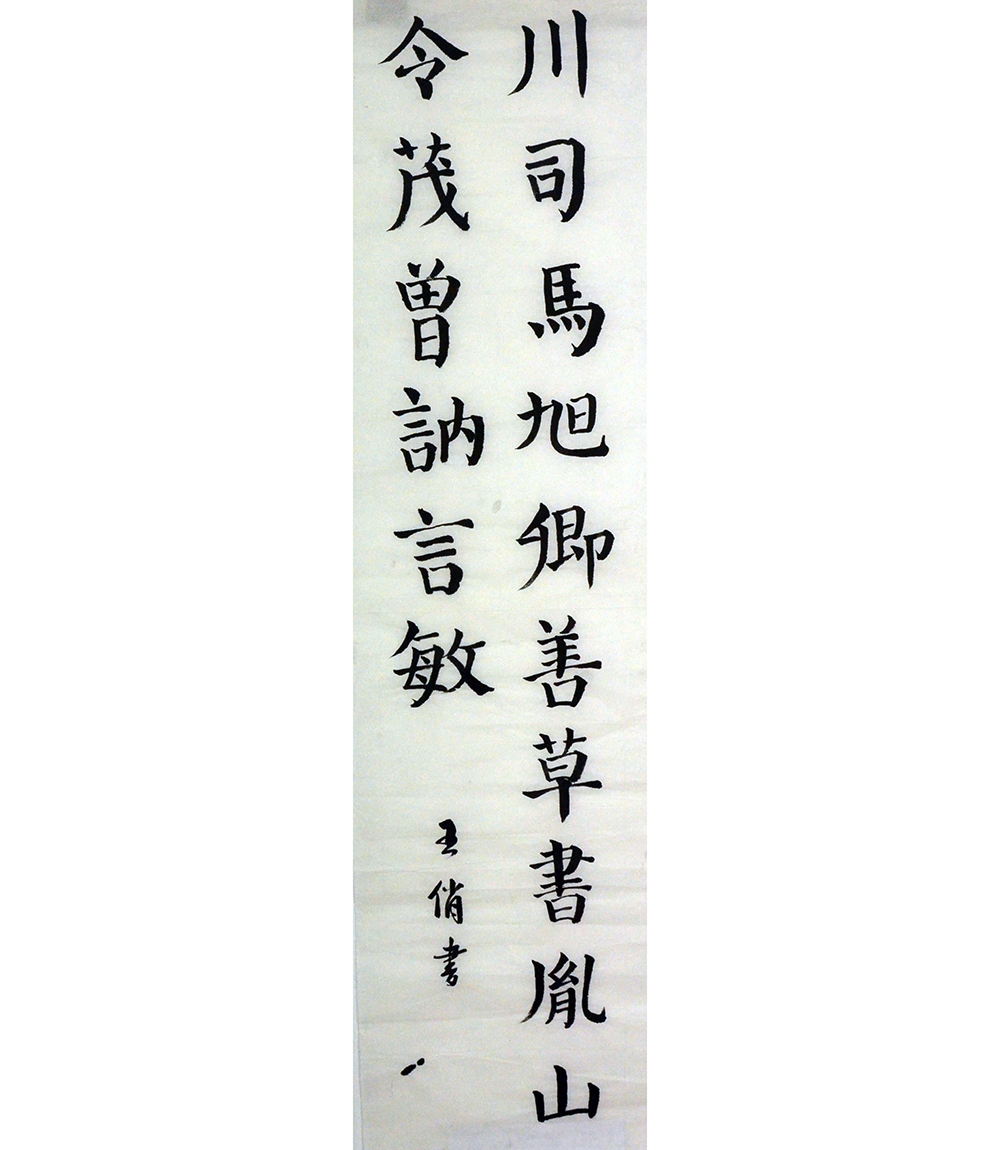 川司馬旭卿善草書胤山
令茂曽訥言敏
王俏書